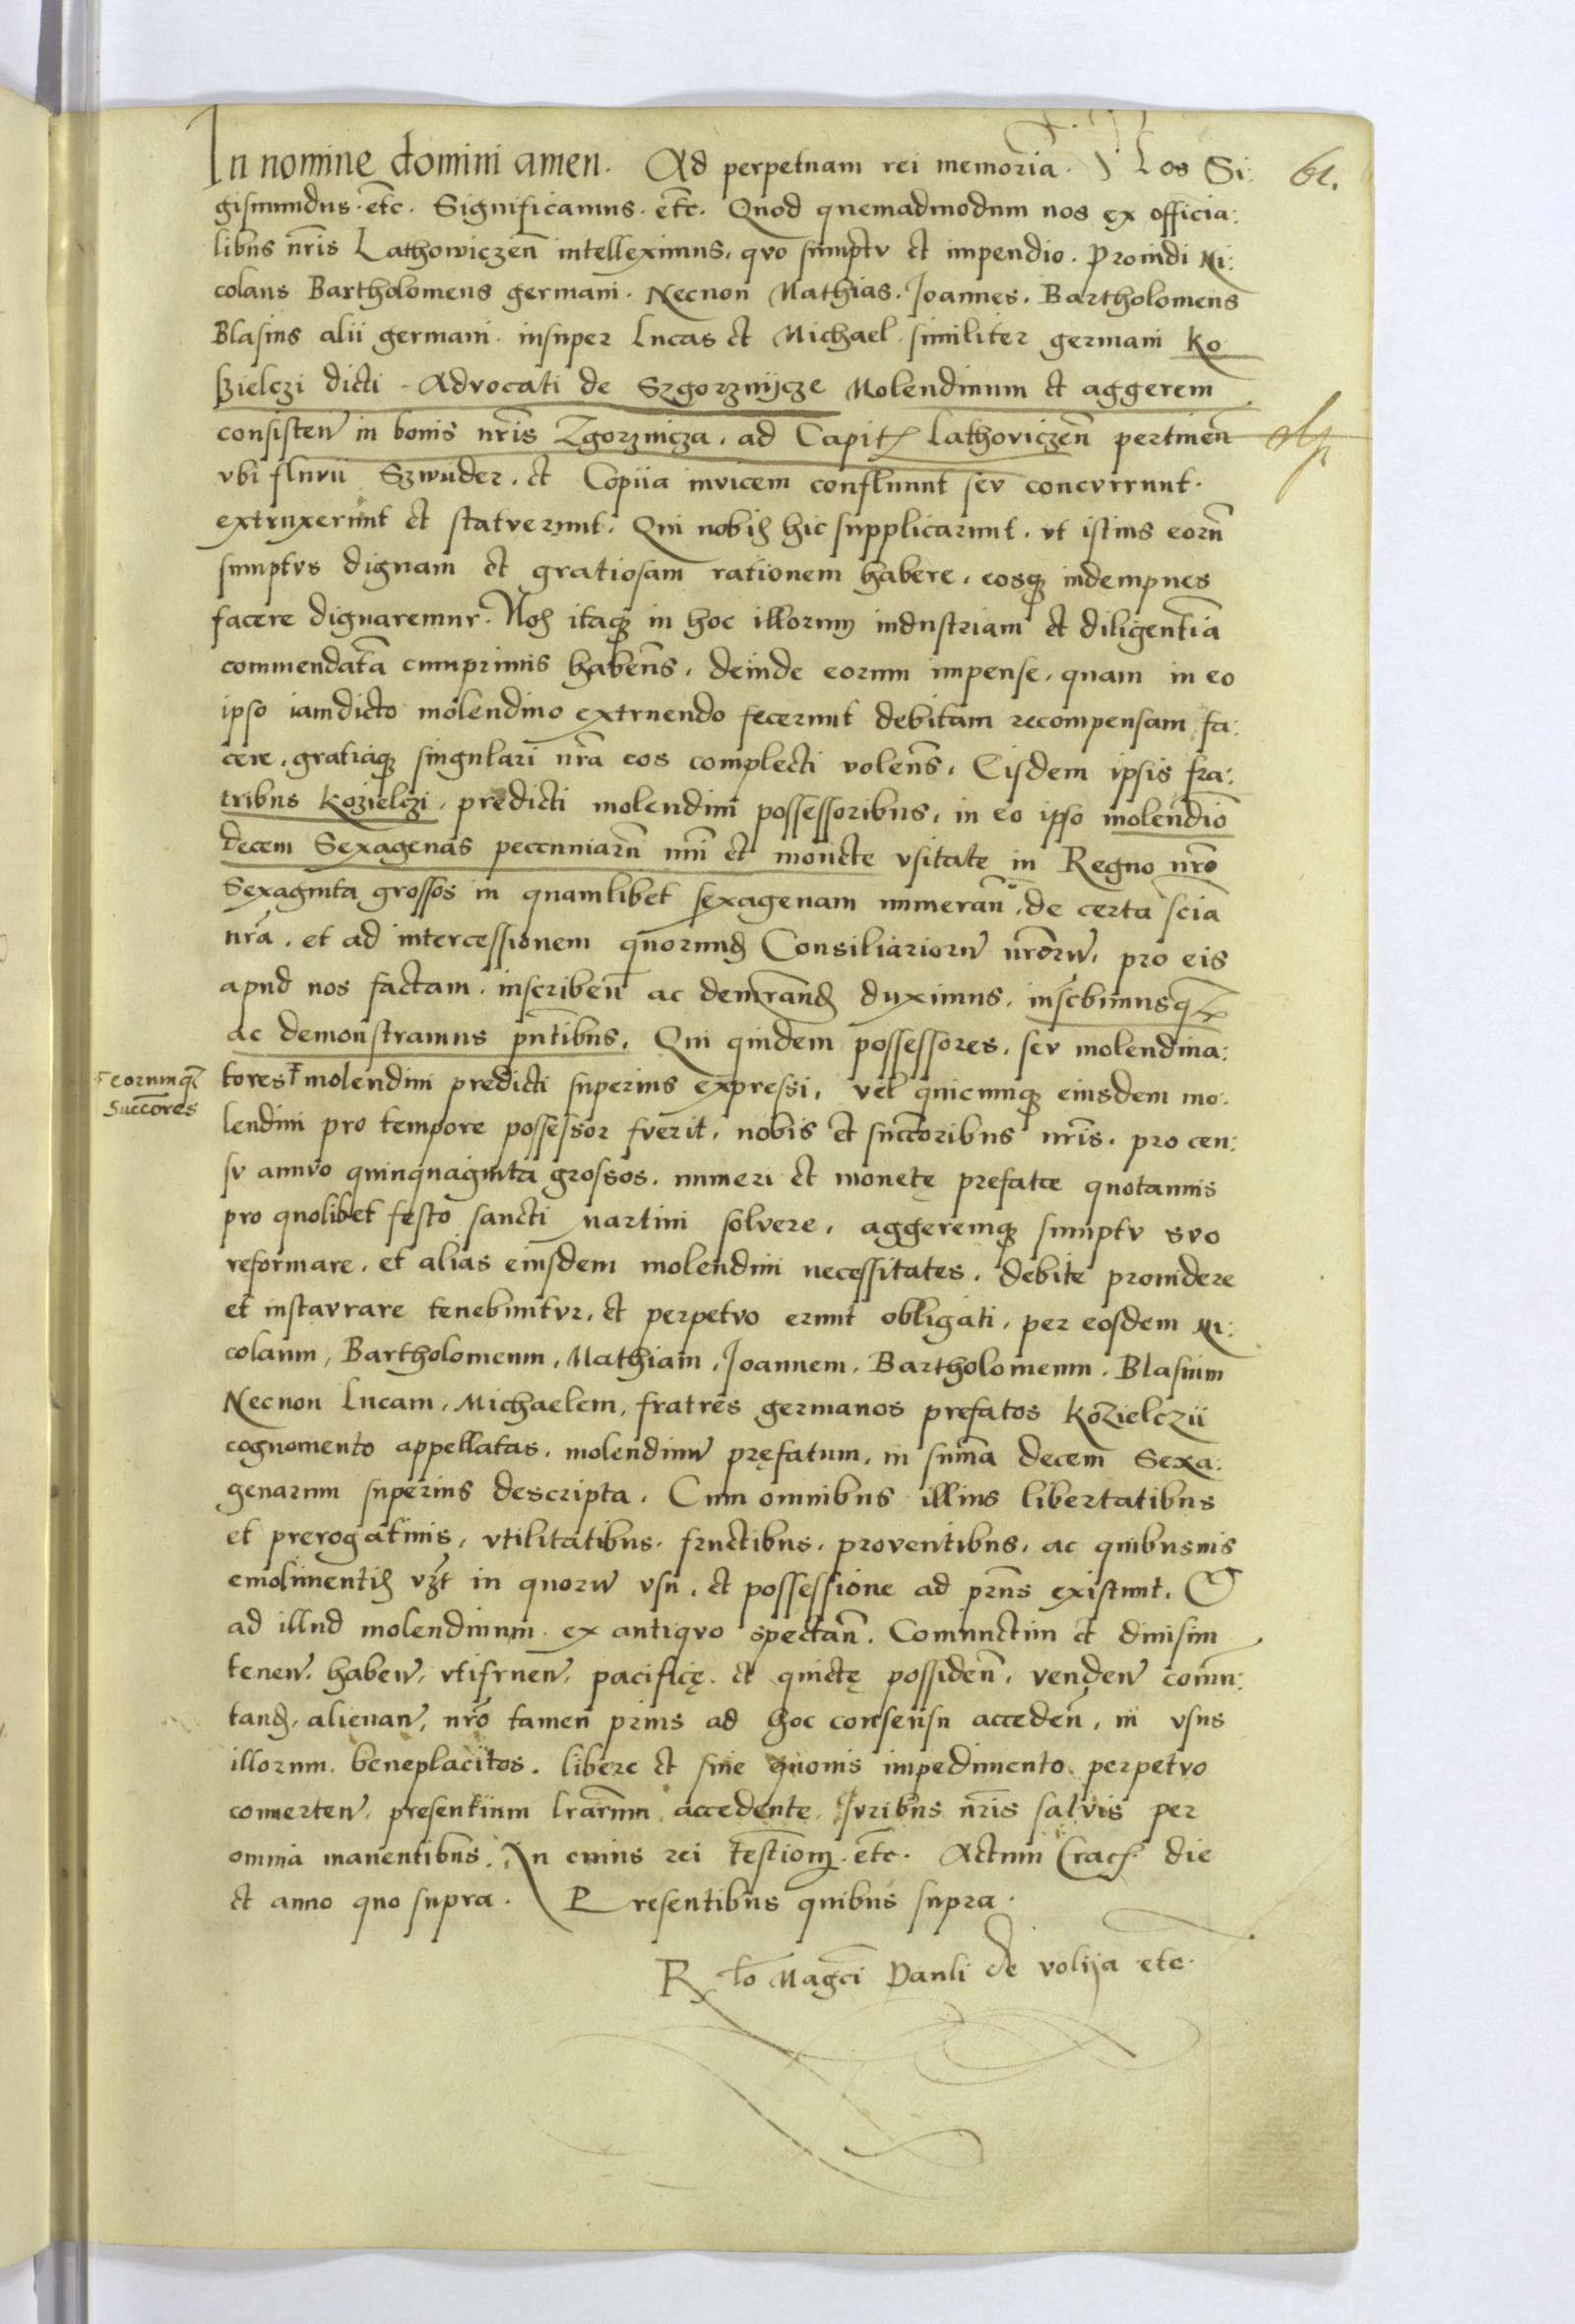 In nomine domini amen. Ad perpetuam rei memoriā. Nos Si: 61.
gismundus. etc̄. Significamus. etc̄. Quod quemadmodum nos ex officia:
libus nr̄is Lathowiczen̄ intelleximus, quo sumptu et impendio. Prouidi Ni:
colaus Bartholomeus germani. Necnon Mathias. Joannes. Bartholomeus
Blasius alii germani. insuper Lucas et Michael similiter germani Ko
szielczi dicti - Advocati de Szgorznijcze Molendinum et aggerem
consisten̄ in bonis nr̄is Zgorznicza, ad Capit. Lathoviczen̄ pertinen̄
vbi fluvii Szwuder, et Copiia invicem confluunt sev concurrunt.
extruxerunt et statuerunt. Qui nobis hic supplicarunt. vt istius eorū
sumptus dignam et gratiosam rationem habere, eosq̧ indempnes
facere dignaremur. Nos itaq̧ in hoc illorum industriam et diligentiā
commendatā cumprimis haben̄s, deinde eorum impense, quam in eo
ipso iamdicto molendino extruendo fecerunt debitam recompensam fa:
cere, gratiaq̧ singulari nr̄a eos complecti volen̄s, Eisdem ipsis fra:
tribus Kozielczi, predicti molendini possessoribus, in eo ipso molendi̅o
decem Sexagenas pecuniarū nr̄i et monete vsitate in Regno nr̄o
Sexaginta grossos in quamlibet sexagenam numeran̄, de certa sci̅a
nr̄a, et ad intercessionem quorund̨ Consiliariorū nr̄orū, pro eis
apud nos factam. inscriben̄ ac demr̄and̨ duximus, insc̄bimusq̧
ac demonstramus pn̄tibus, Qui quidem possessores, sev molendina:
⸀eorumq̧ tores⸀ molendini predicti superius expressi, vel quicumq̧ eiusdem mo.
Succ̄ores lendini pro tempore possessor fuerit, nobis et succ̄oribus nr̄is. pro cen:
su annuo quinquaginta grossos. numeri et monetę prefatae quotannis
pro quolibet festo sancti Martini solvere, aggeremq̧ sumptu suo
reformare, et alias eiusdem molendini necessitates, debite prouidere
et instaurare tenebuntur, et perpetuo erunt obligati, per eosdem Ni:
colaum, Bartholomeum, Mathiam, Joannem. Bartholomeum. Blasium
Necnon Lucam, Michaelem, fratres germanos prefatos Kozielczii
cognomento appellatas, molendinū pręfatum, in sum̄a decem Sexa:
genarum superius descripta. Cum omnibus illius libertatibus
et prerogatiuis, vtilitatibus. fructibus, proventibus, ac quibusuis
emolimentis vz̄t in quorū vsu, et possessione ad prn̄s existunt. Et
ad illud molendinum ex antiquo spectan̄. Comunctim et diuisim
tenen̄, haben̄, vtifruen̄, pacificę et quietę possiden̄, venden̄ com̄u:
tand̨, alienan̄, nr̄o tamen prius ad hoc consensu acceden̄, in vsus
illorum beneplacitos. libere et sine quouis impedimento perpetuo
conuerten̄, presentium lr̄arum accedente. Juribus nr̄is saluis per
omnia manentibus. In cuius rei testi̅om̨. etc̄. Actum Crac. die
et anno quo supra. Presentibus quibus supra.
R̄ lō Magc̄i Pauli de volija etc.